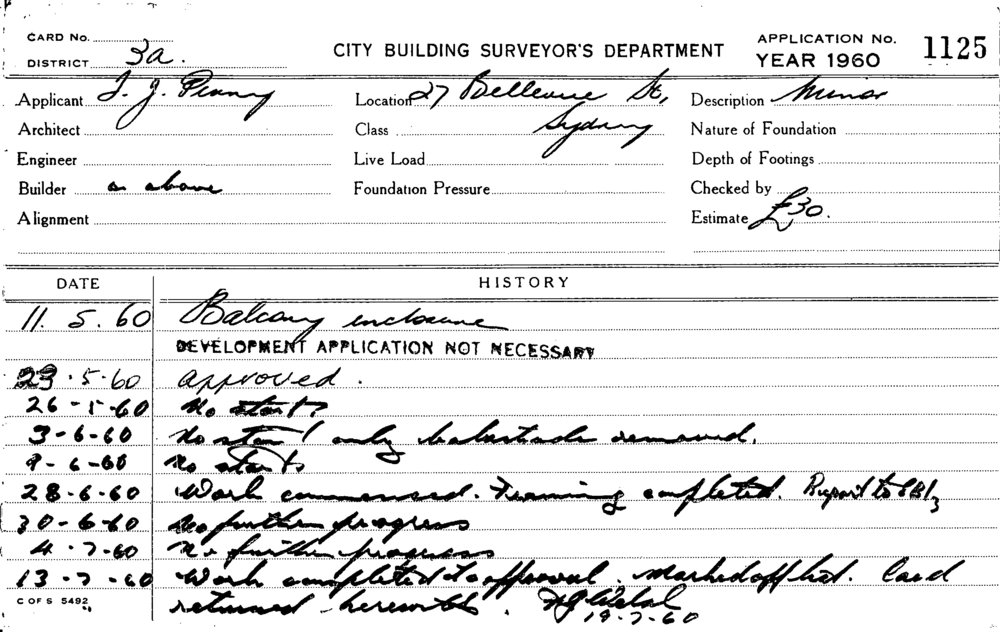 CARD No.
DISTRICT 3a.
CITY BUILDING SURVEYOR'S DEPARTMENT
APPLICATION No. 1125
YEAR 1960
Applicant J. J. Penny
Location 27 Bellevue St,
Sydney
Description Minor
Architect
Class
Nature of Foundation
Engineer
Live Load
Depth of Footings
Builder as above
Foundation Pressure
Checked by
Alignment
Estimate £30.
DATE HISTORY
11. 5. 60 Balcony enclosure
DEVELOPMENT APPLICATION NOT NECESSARY
23.5.60 approved.
26-5-60 No start
3-6-60 No start only balustrade removed.
9-6-60 No start
28-6-60 Work commenced. Framing completed. Report to
30-6-60 No further progress
4.7-60 No further progress
13-7-60 Work completed to approval. Marked off list. Card
returned herewith.
19-7-60
C OF S 5492